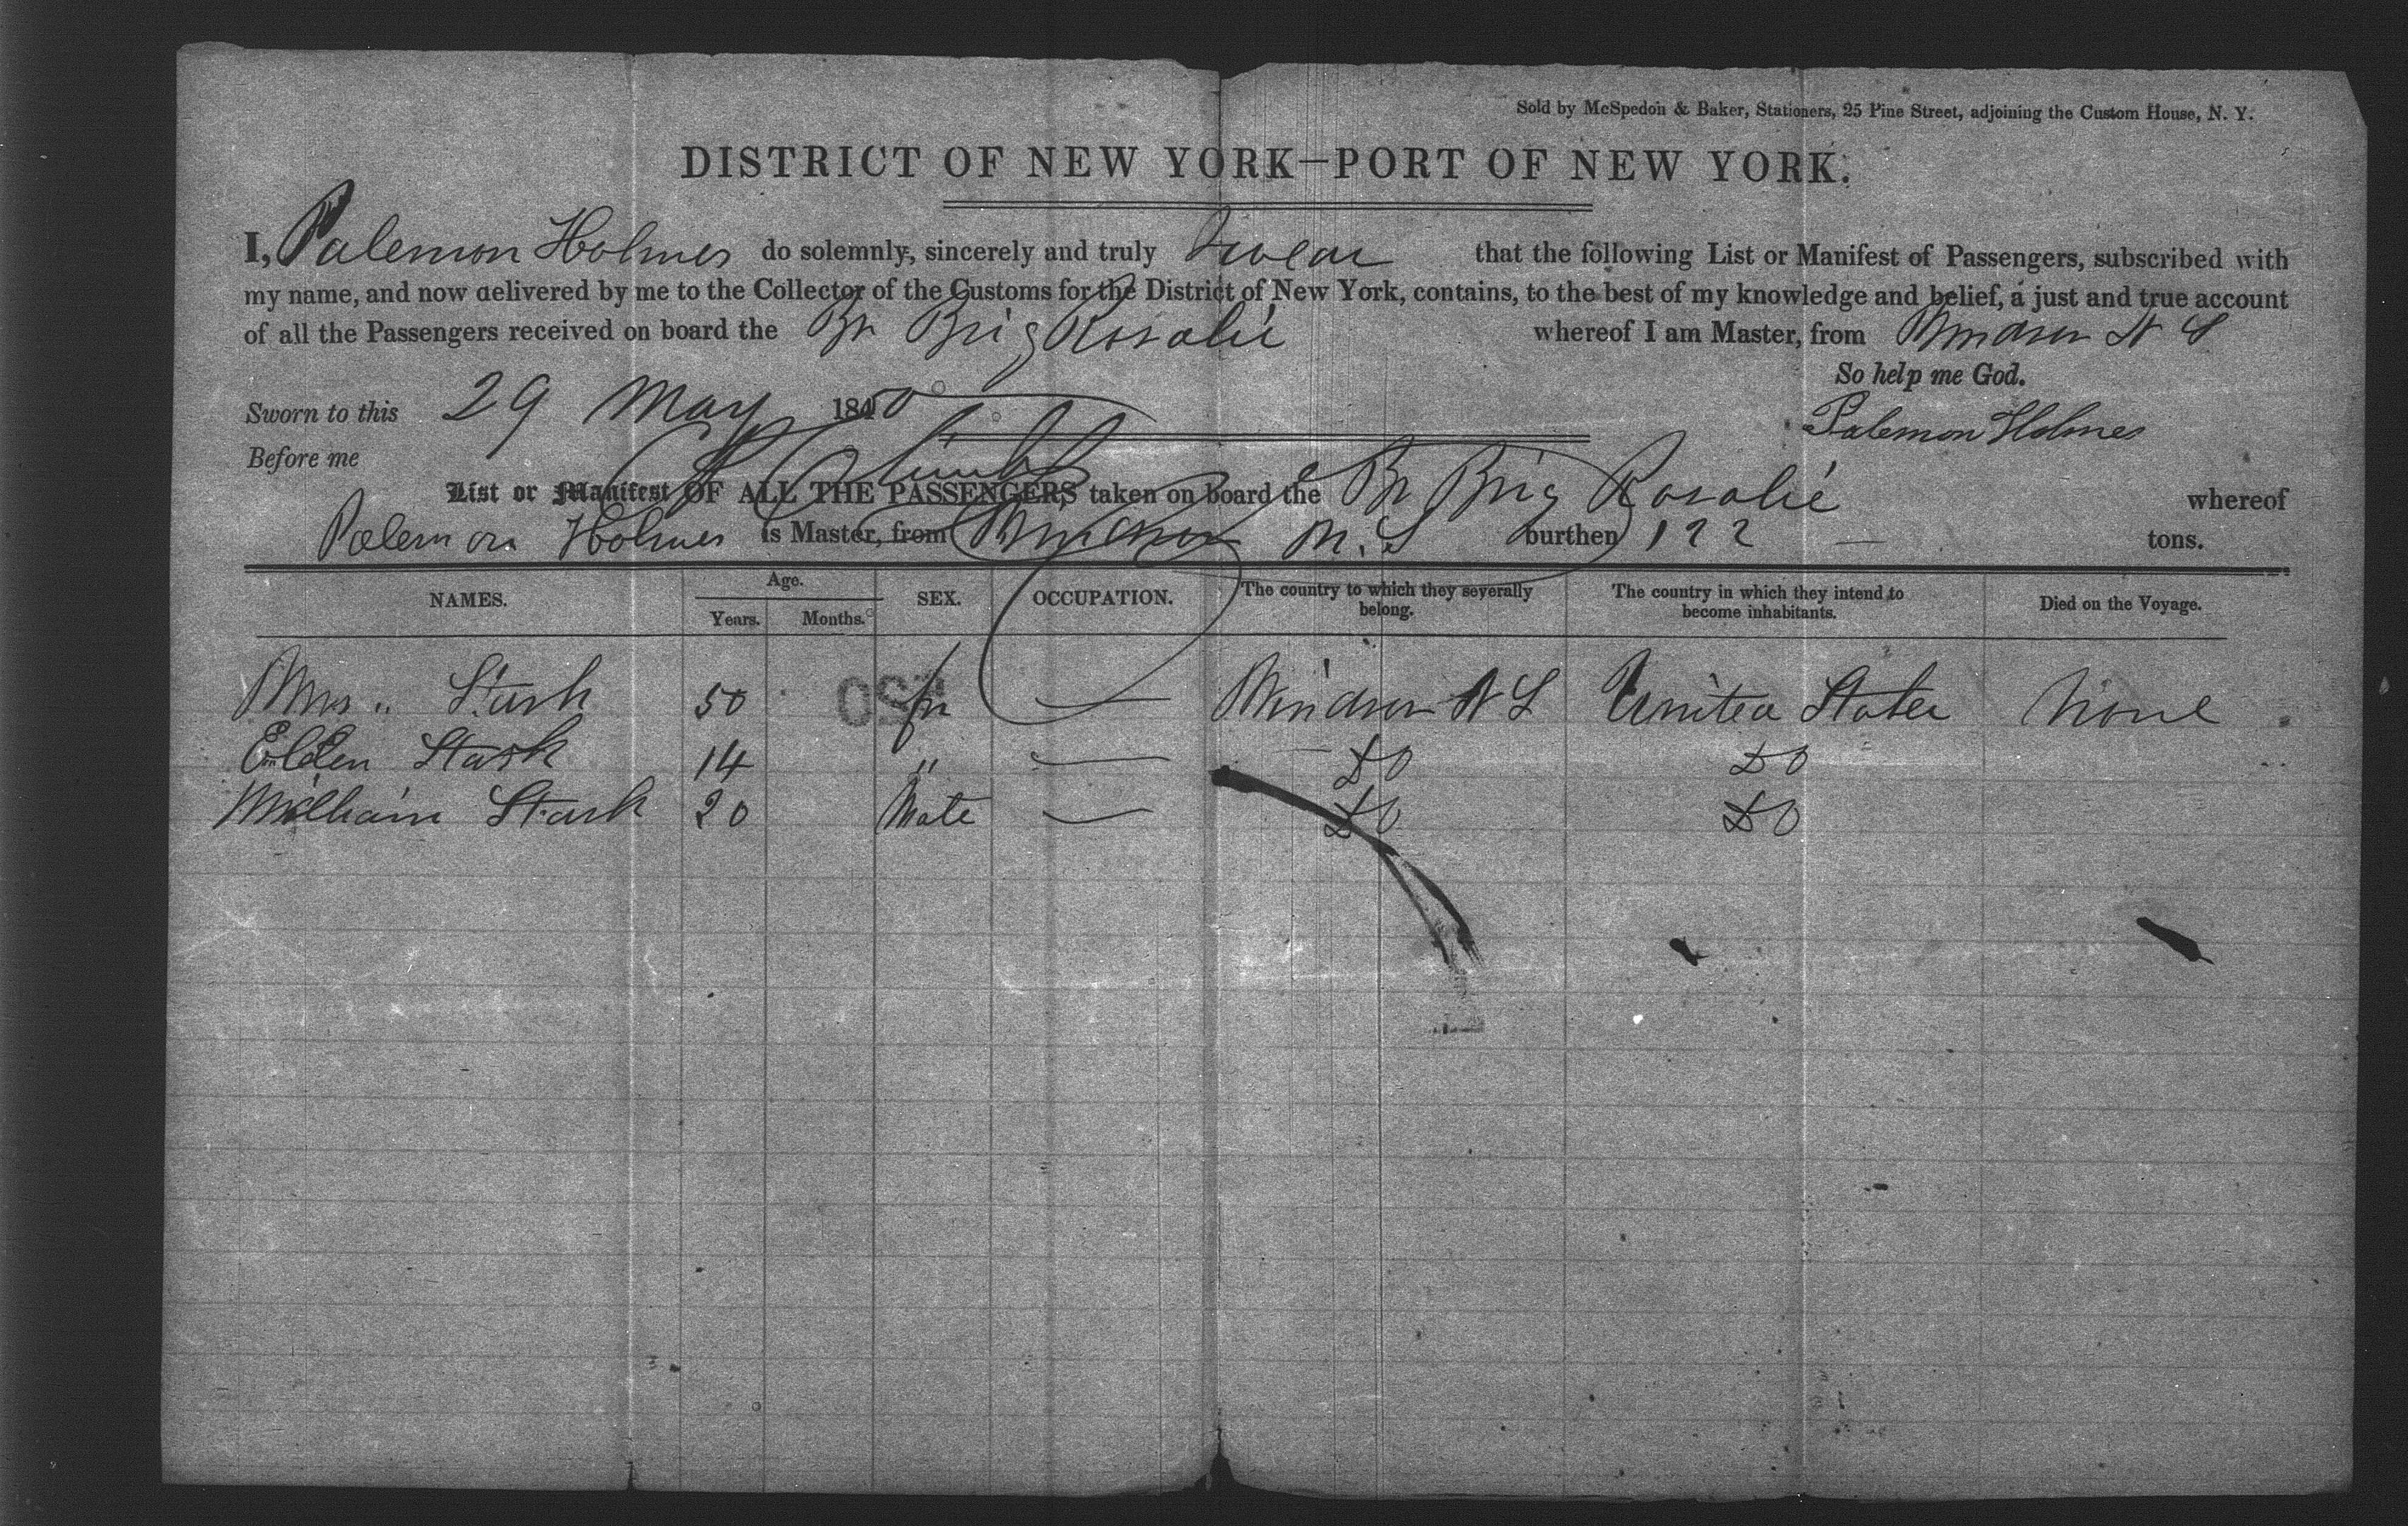 Sold by McSpedon & Baker, Stationers, 25 Pine Street, adjoining the Custom House, N. Y.
DISTRICT OF NEW YORK—PORT OF NEW YORK.
I, Palemon Holmes do solemnly, sincerely and truly Swear that the following List or Manifest of Passengers, subscribed with
my name, and now delivered by me to the Collector of the Customs for the District of New York, contains, to the best of my knowledge and belief, a just and true account
of all the Passengers received on board the Br Brig Rosalie whereof I am Master, from Windsor N S
So help me God.
Sworn to this 29 May 1850
Palemon Holmes
Before me
List or Manifest OF ALL THE PASSENGERS taken on board the Br Brig Rosalie whereof
Palemon Holmes is Master, from Windsor N.S burthen 122 tons.
NAMES. Age. Years. Months. SEX. OCCUPATION. The country to which they severally belong. The country in which they intend to become inhabitants. Died on the Voyage.
Mrs. Stark 50 fm Windsor N S United States None
Ellen Stark 14 " Do Do
William Stark 20 Male Do Do